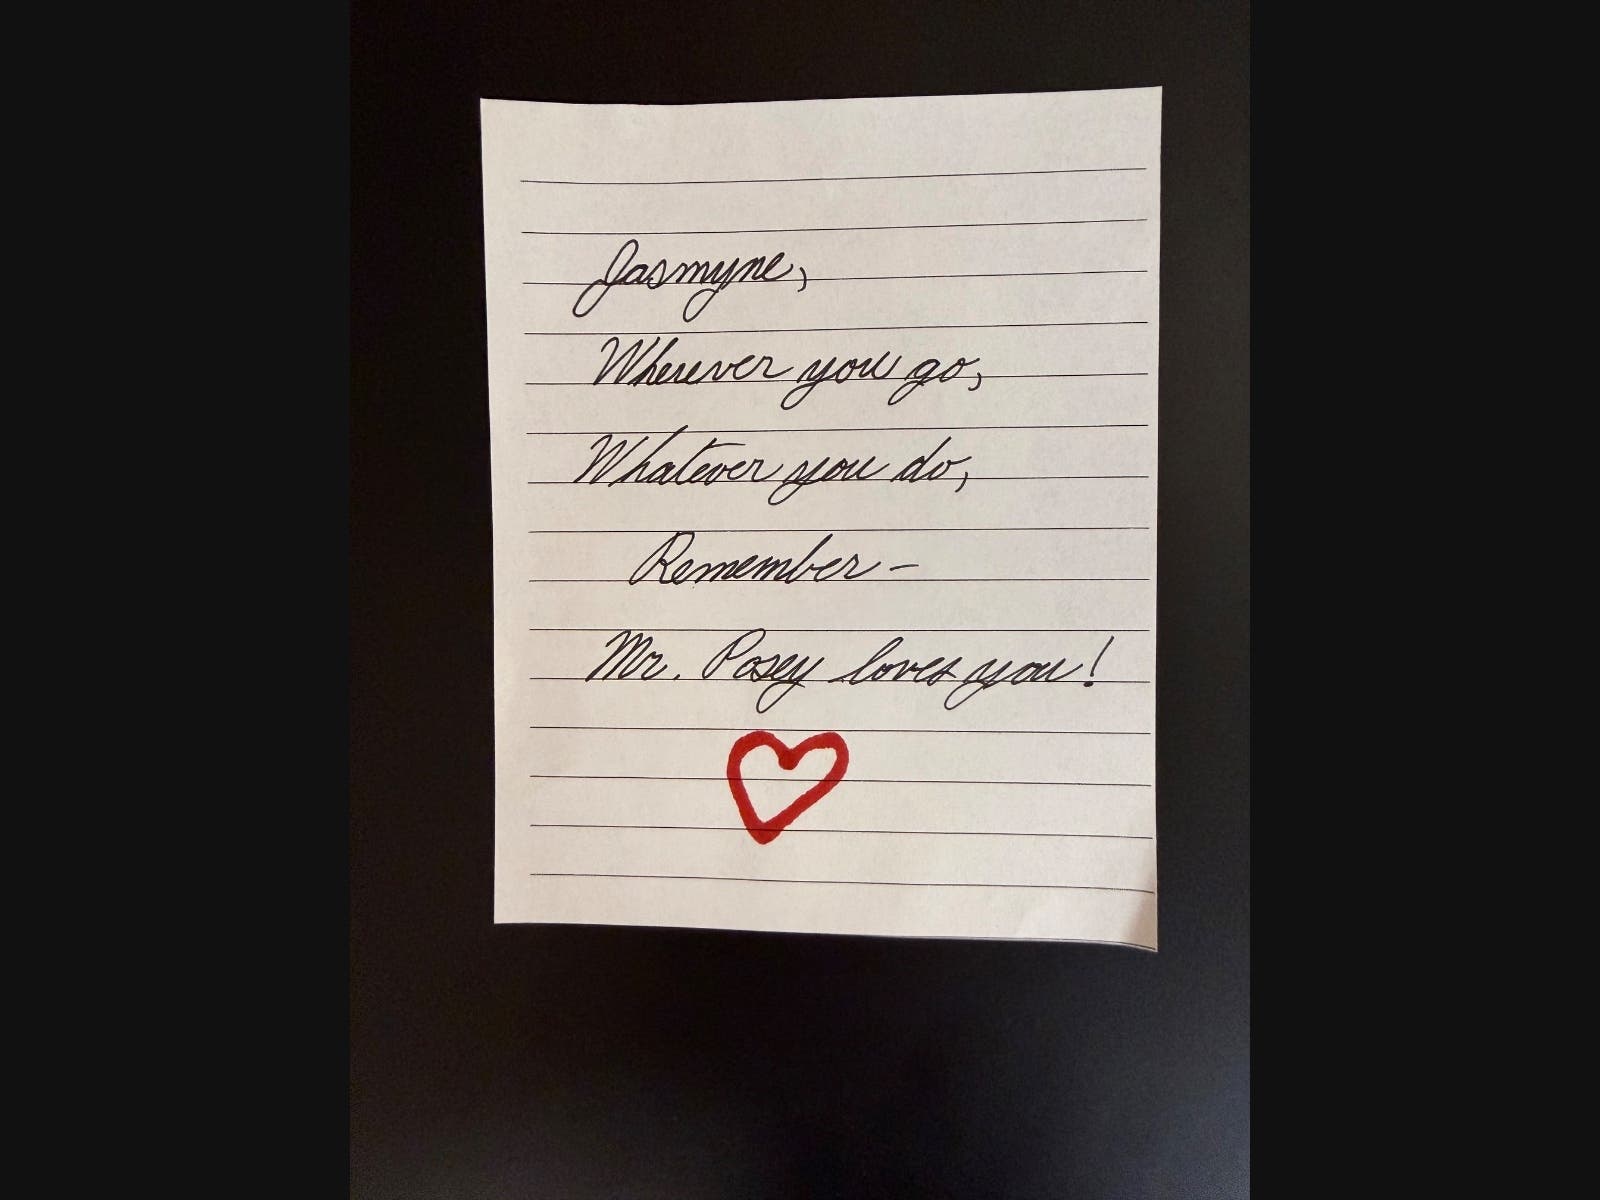 Jasmyne,
Wherever you go,
Whatever you do,
Remember -
Mr. Posey loves you!